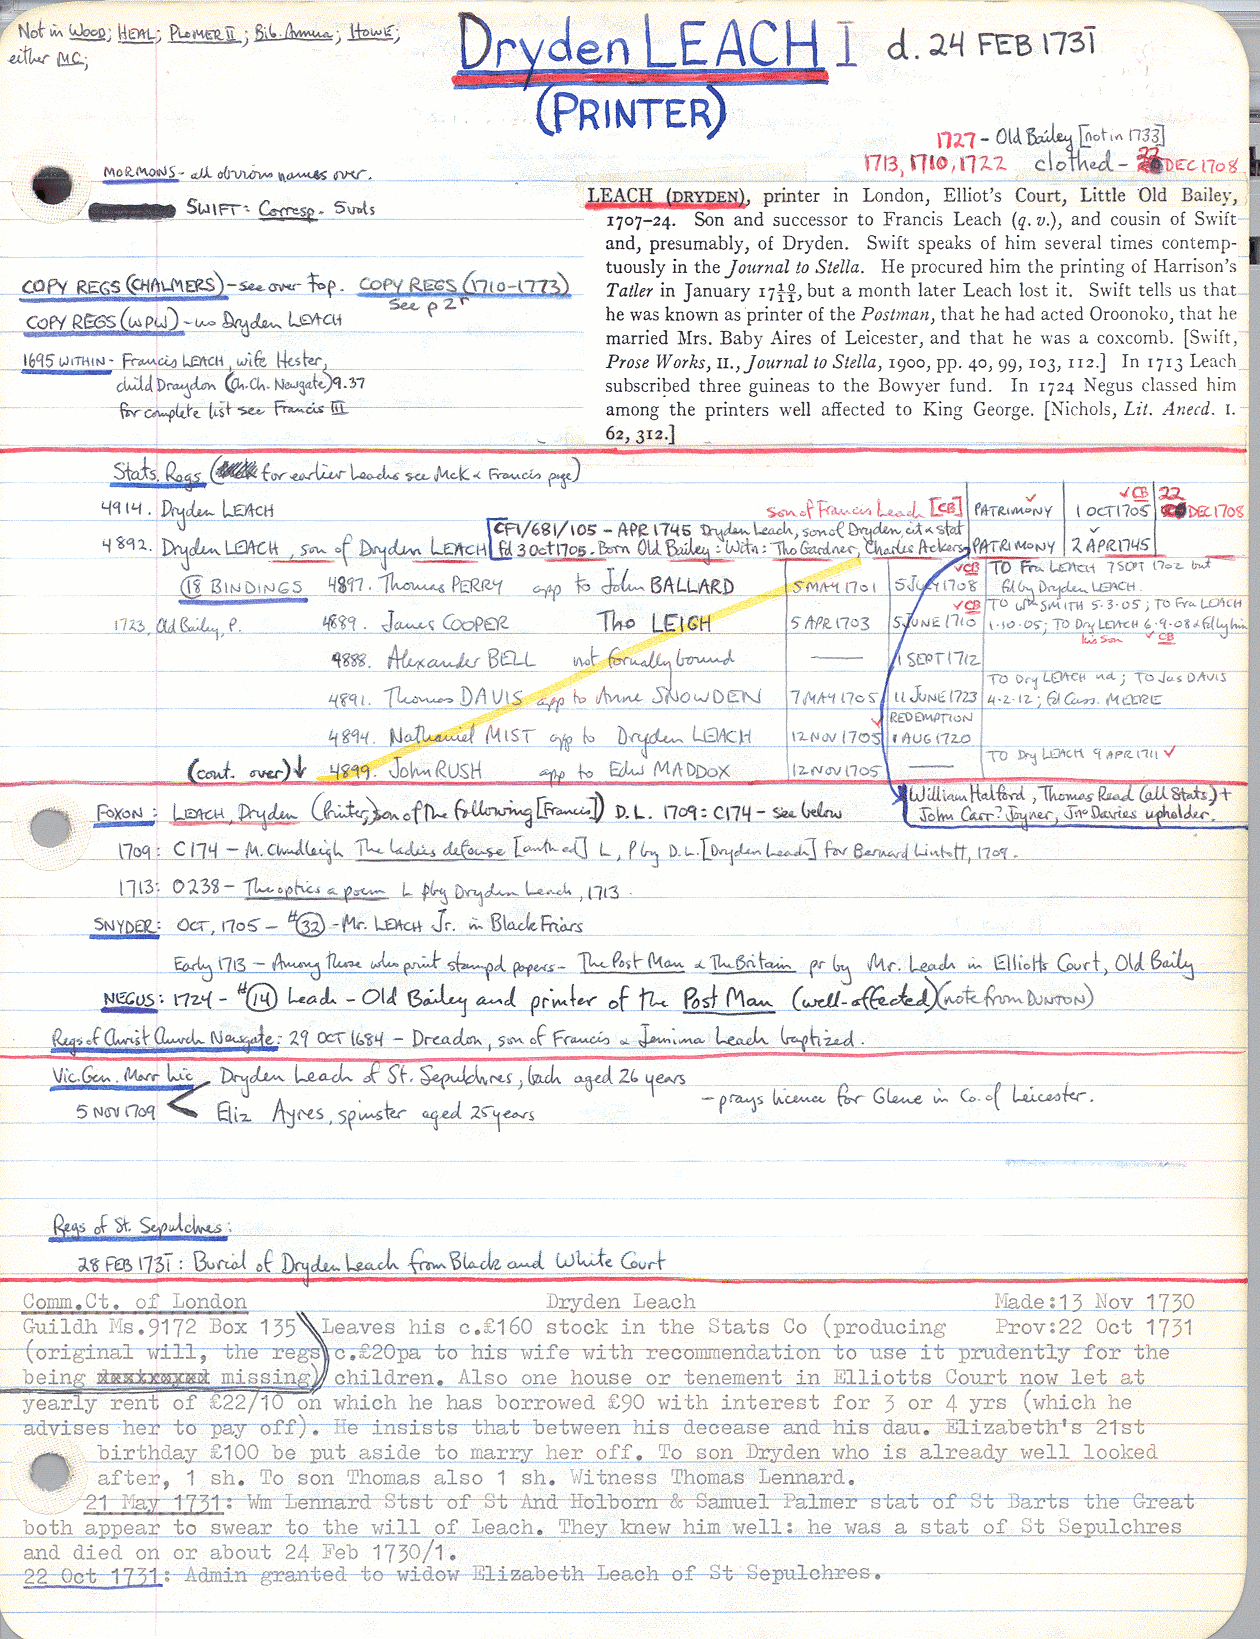 Not in WOOD; HEAL; PLOMER II; Bib. Annua; HOWE;
either MC;
Dryden LEACH I d. 24 FEB 1731
(PRINTER)
1727 - Old Bailey [not in 1733]
1713, 1710, 1722 clothed - 22 DEC 1708
MORMONS - all obvious names over.
SWIFT: Corresp. 5 vols
COPY REGS (CHALMERS) - see over top. COPY REGS (1710-1773)
See p 2r
COPY REGS (WPW) - no Dryden LEACH
1695 WITHIN - Francis LEACH, wife Hester,
child Draydon (Ch.Ch. Newgate) 9.37
for complete list see Francis III
LEACH (DRYDEN), printer in London, Elliot's Court, Little Old Bailey,
1707-24. Son and successor to Francis Leach (q. v.), and cousin of Swift
and, presumably, of Dryden. Swift speaks of him several times contemp-
tuously in the Journal to Stella. He procured him the printing of Harrison's
Tatler in January 17 10/11, but a month later Leach lost it. Swift tells us that
he was known as printer of the Postman, that he had acted Oroonoko, that he
married Mrs. Baby Aires of Leicester, and that he was a coxcomb. [Swift,
Prose Works, II., Journal to Stella, 1900, pp. 40, 99, 103, 112.] In 1713 Leach
subscribed three guineas to the Bowyer fund. In 1724 Negus classed him
among the printers well affected to King George. [Nichols, Lit. Anecd. I.
62, 312.]
Stats. Regs (for earlier Leachs see McK & Francis page)
4914. Dryden LEACH son of Francis Leach [CB] PATRIMONY ✓ 1 OCT 1705 ✓ CB 22 DEC 1708
4892. Dryden LEACH, son of Dryden LEACH PATRIMONY 2 APR 1745 ✓
CF1/681/105 - APR 1745 Dryden Leach, son of Dryden, cit & stat
fd 3 OCT 1705. Born Old Bailey: Witn: Tho Gardner, Charles Ackers,
(18 BINDINGS 4897. Thomas PERRY app to John BALLARD 5 MAY 1701 5 JULY 1708 ✓ CB TO Fra LEACH 7 SEPT 1702 but
fd by Dryden LEACH.
1723, Old Bailey, P. 4889. James COOPER Tho LEIGH 5 APR 1703 5 JUNE 1710 ✓ CB TO Wm SMITH 5.3.05; TO Fra LEACH
1.10.05; TO Dry LEACH 6.9.08 & fd by him
his son ✓ CB
4888. Alexander BELL not formally bound —— 1 SEPT 1712
4891. Thomas DAVIS app to Anne SNOWDEN 7 MAY 1705 11 JUNE 1723 TO Dry LEACH nd; TO Jas DAVIS
4.2.12; fd Cass. MEERE
4894. Nathaniel MIST app to Dryden LEACH 12 NOV 1705 ✓ REDEMPTION
1 AUG 1720
(cont. over) ↓ 4899. John RUSH app to Edw MADDOX 12 NOV 1705 —— TO Dry LEACH 9 APR 1711 ✓
William Halford, Thomas Read (all Stats) +
John Carr? Joyner, Jno Davies upholder.
FOXON: LEACH, Dryden (Printer, son of the following [Francis]) D.L. 1709: C174 - see below
1709: C174 - M. Chudleigh The ladies defense [anth ed] L, P by D.L. [Dryden Leach] for Bernard Lintott, 1709.
1713: O238 - The optics a poem L p by Dryden Leach, 1713.
SNYDER: OCT, 1705 - #32 - Mr. LEACH Jr. in Black Friars
Early 1713 - Among those who print stampd papers - The Post Man & The Britain pr by Mr. Leach in Elliotts Court, Old Baily
NEGUS: 1724 - #14 Leach - Old Bailey and printer of the Post Man (well-affected) (note from DUNTON)
Regs of Christ Church Newgate: 29 OCT 1684 - Dreadon, son of Francis & Jemima Leach baptized.
Vic. Gen. Marr Lic Dryden Leach of St. Sepulchres, bach aged 26 years
5 NOV 1709 Eliz Ayres, spinster aged 25 years - prays licence for Glene in Co. of Leicester.
Regs of St. Sepulchres:
28 FEB 1731: Burial of Dryden Leach from Black and White Court
Comm.Ct. of London Dryden Leach Made:13 Nov 1730
Guildh Ms.9172 Box 135 Leaves his c.£160 stock in the Stats Co (producing Prov:22 Oct 1731
(original will, the regs c.£20pa to his wife with recommendation to use it prudently for the
being missing) children. Also one house or tenement in Elliotts Court now let at
yearly rent of £22/10 on which he has borrowed £90 with interest for 3 or 4 yrs (which he
advises her to pay off). He insists that between his decease and his dau. Elizabeth's 21st
birthday £100 be put aside to marry her off. To son Dryden who is already well looked
after, 1 sh. To son Thomas also 1 sh. Witness Thomas Lennard.
21 May 1731: Wm Lennard Stst of St And Holborn & Samuel Palmer stat of St Barts the Great
both appear to swear to the will of Leach. They knew him well: he was a stat of St Sepulchres
and died on or about 24 Feb 1730/1.
22 Oct 1731: Admin granted to widow Elizabeth Leach of St Sepulchres.